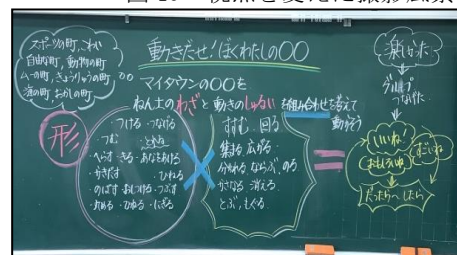 スポーツの町、こわい
自由な町、動物の町
ムーの町、きょうりゅうの町
海の町、おかしの町
〇〇
動きだせ!ぼくわたしの〇〇
マイタウンの〇〇を
ねん土のわざと動きのしゅるいを組み合わせを考えて
動かそう
形
・つける ・つなげる
・つむ
・へらす ・きる ・あなをあける
・かきだす ・ひねる
・のばす ・おしつける ・つぶす
・丸める ・ひねる ・にぎる
×
すすむ、回る
集まる、広がる
分かれる、ならぶ、のる
かさなる、消える
とぶ、もぐる
=
楽しかった
グループ
つなげた
いいね
おもしろいね
すごいね
だったら〜したら